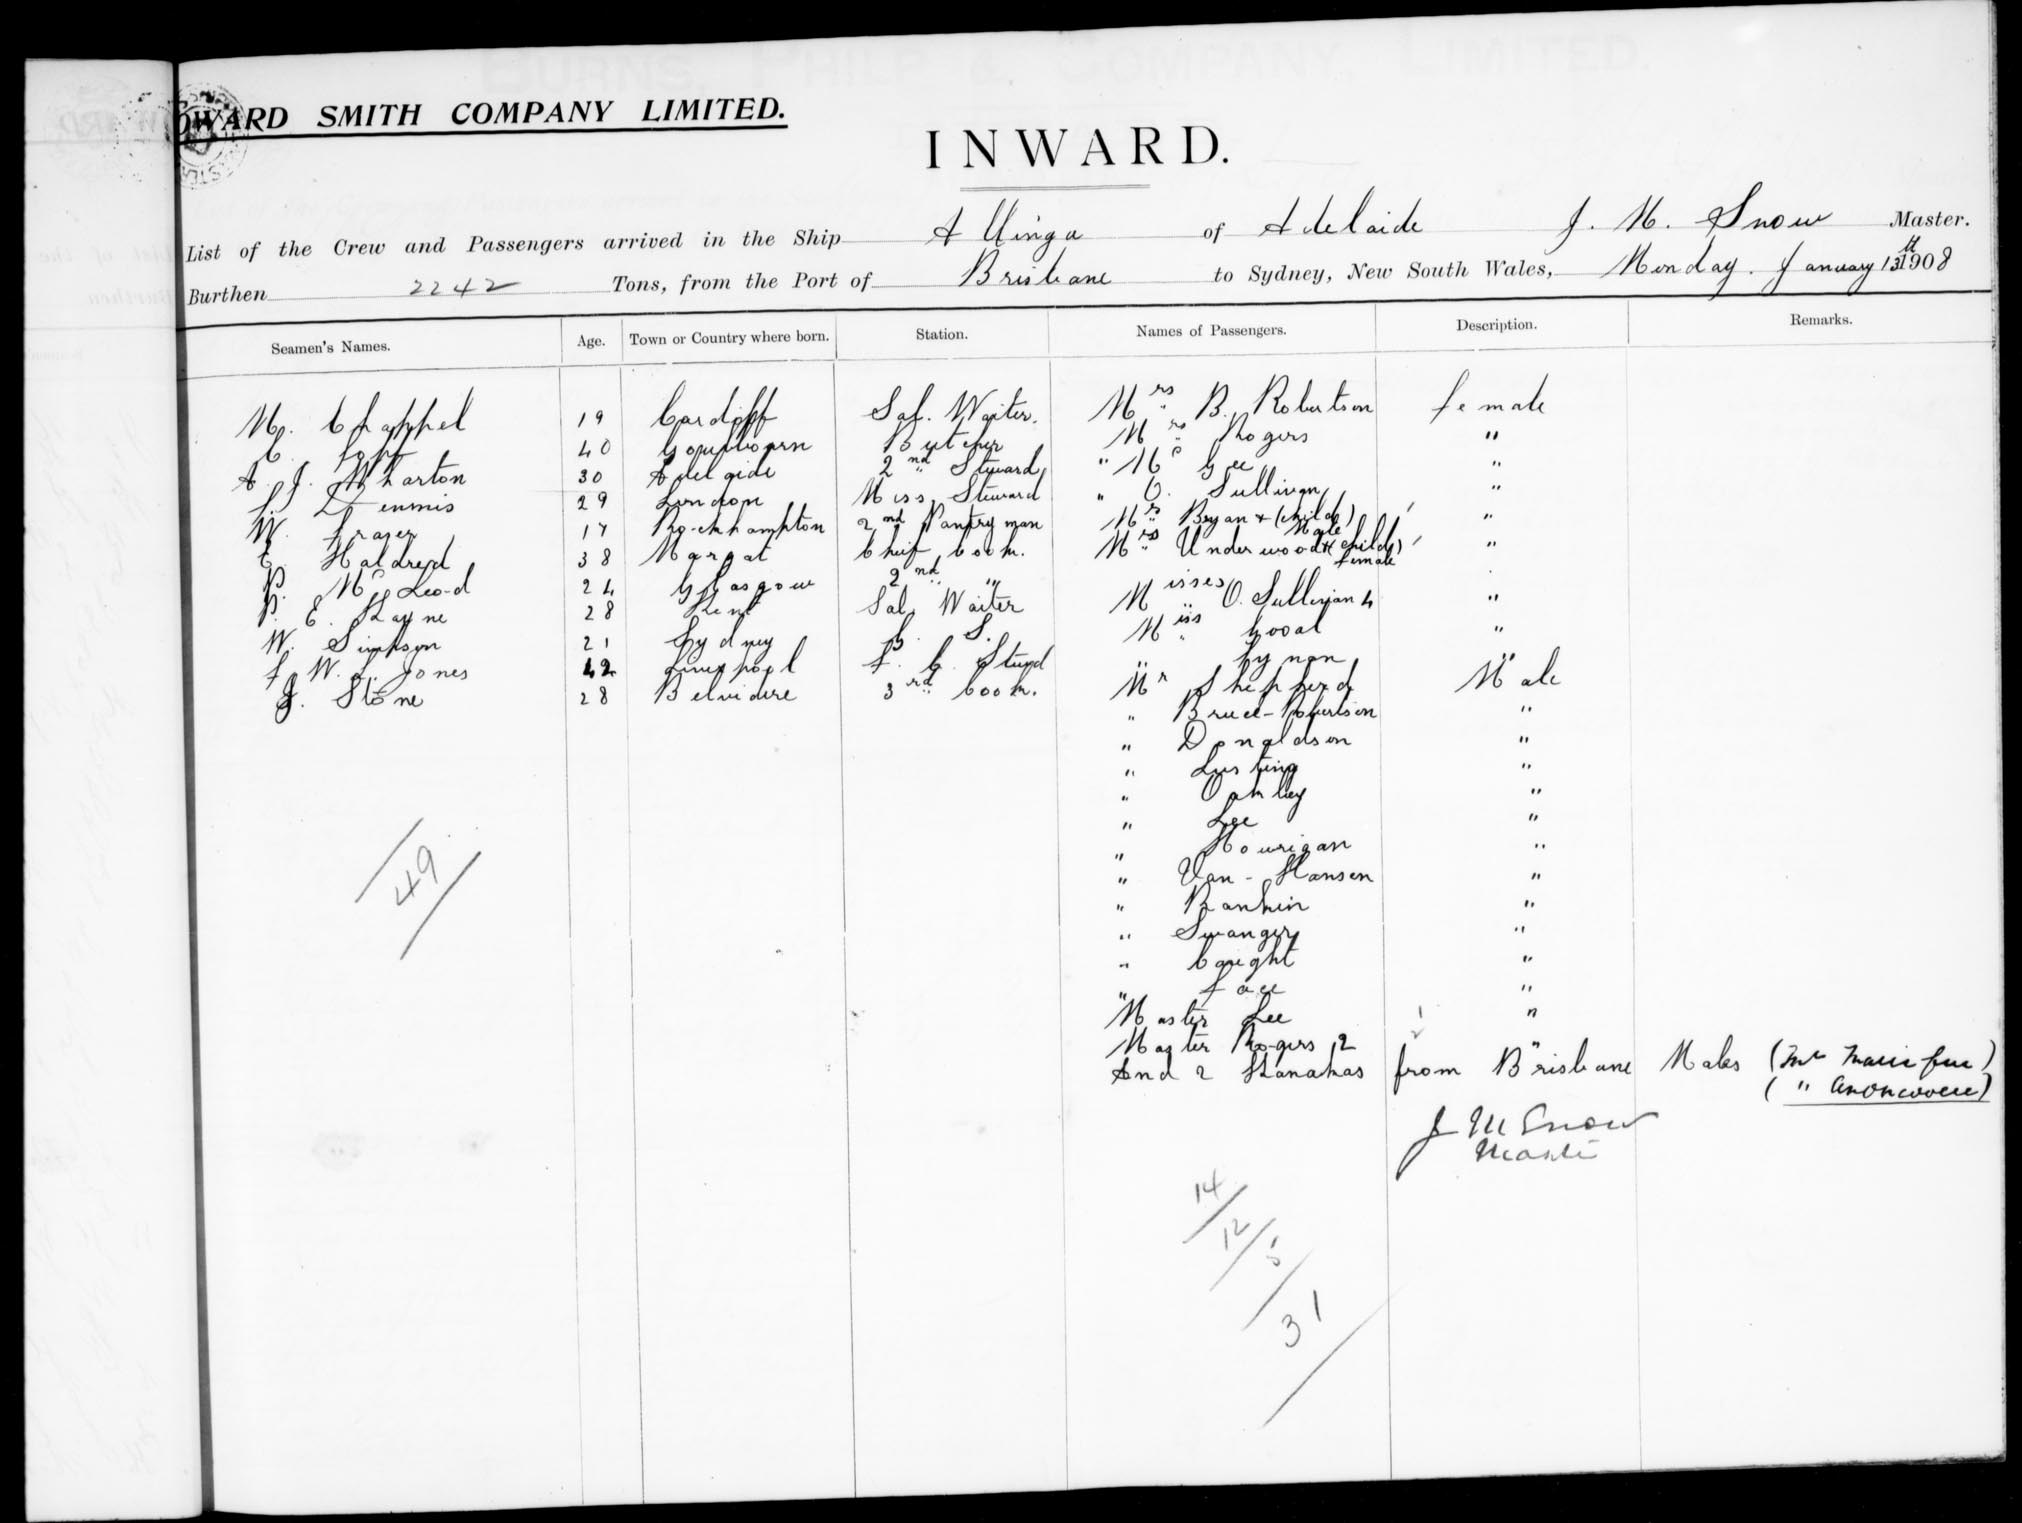 OWARD SMITH COMPANY LIMITED.
INWARD.
List of the Crew and Passengers arrived in the Ship Allinga of Adelaide J. M. Snow Master.
Burthen 2242 Tons, from the Port of Brisbane to Sydney, New South Wales, Monday. January 13th 1908
Seamen's Names. Age. Town or Country where born. Station. Names of Passengers. Description. Remarks.
M. Chappel 19 Cardiff Sal. Waiter. Mrs B. Robertson female
C. 40 Butcher Mrs Rogers "
A. J. Wharton 30 Adelaide 2nd Steward " Mc Gee "
Dennis 29 London Mess Steward " O. Sullivan "
W. Fraser 17 Rockhampton 2nd Pantryman Mrs Bryan & (child) Male "
E. Haldred 38 Margat Cheif Cook. Mrs Underwood & (child) female "
P. McLeod 24 Glasgow 2nd " Misses O. Sullivan 4 "
P. E. Kayne 28 Kent Sal Waiter Miss "
W. Simpson 21 Sydney B. S. " Lynan "
F. W. L. Jones 42 Liverpool F. C. Stwd Mr Shepherd Male
J. Stone 28 Belvidere 3rd Cook. " Bruce-Robertson "
" Donaldson "
" Lusting "
" Oakley "
" Lee "
" Hourigan "
" Van-Hansen "
" Rankin "
" Swanger "
" "
" Face "
Master Lee "
Master Rogers 2 "
And 2 Kanakas from Brisbane Males (Mr )
( " )
J M Snow
Master
49
14/12/5/31